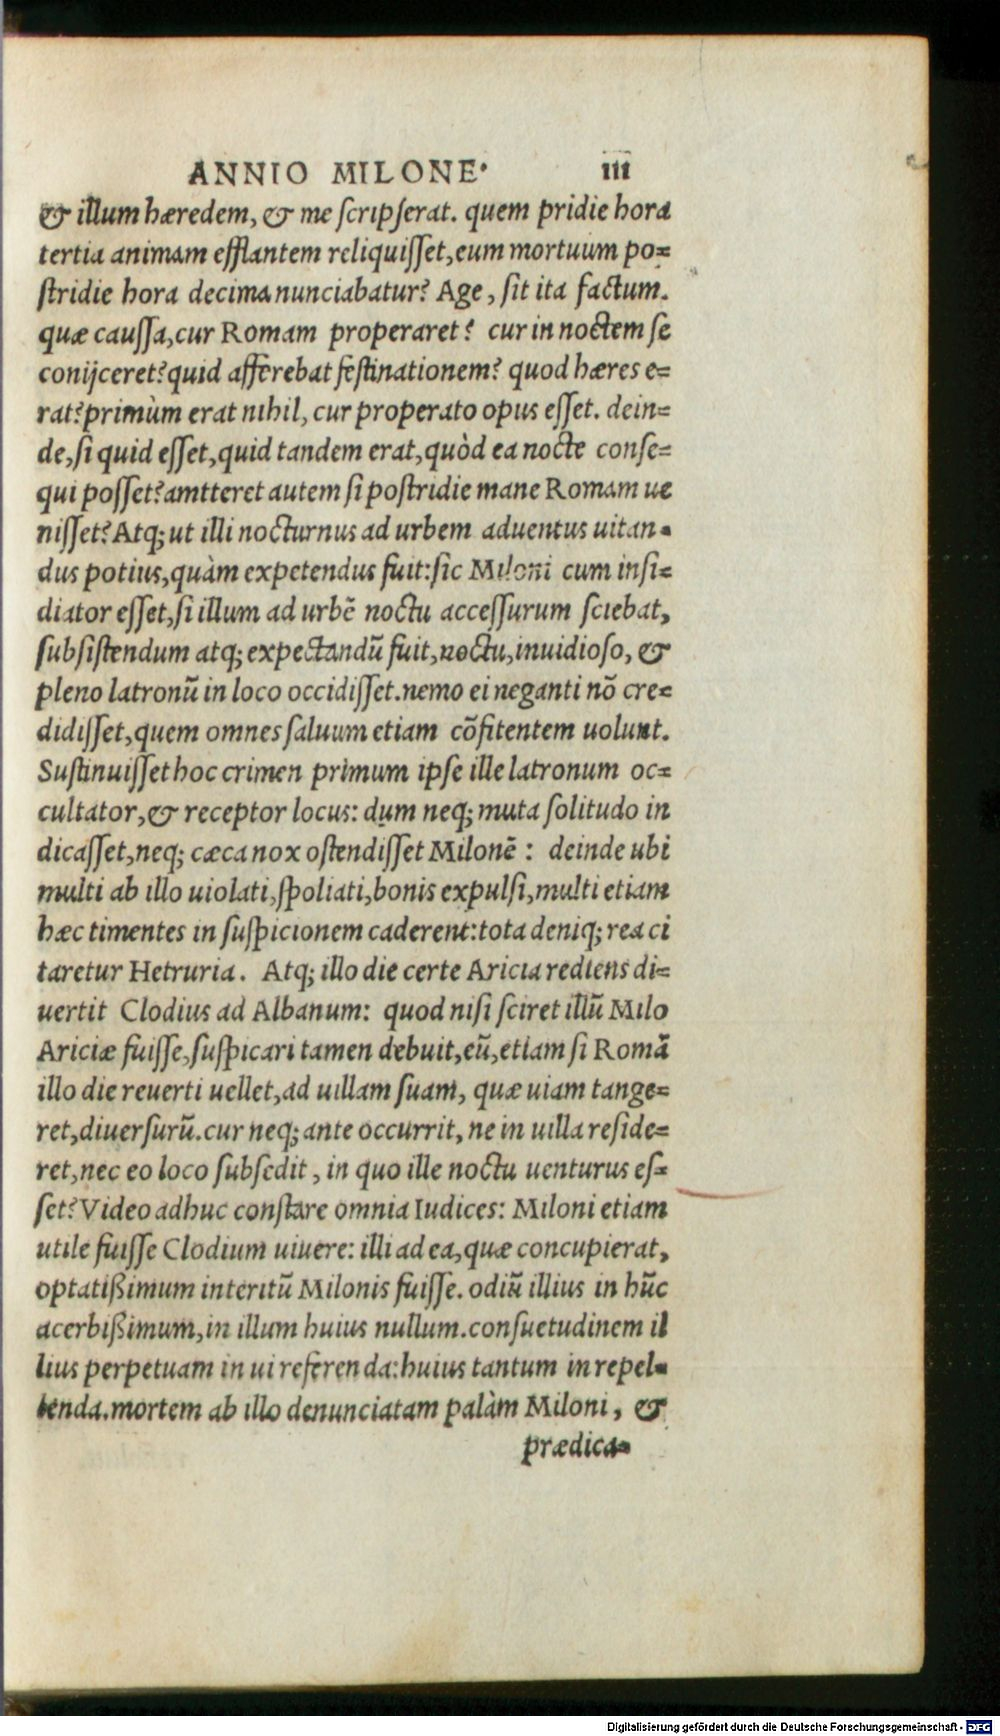 ANNIO MILONE. 111
& illum hæredem, & me scripserat. quem pridie hora
tertia animam efflantem reliquisset, eum mortuum po=
stridie hora decima nunciabatur? Age, sit ita factum.
quæ caussa, cur Romam properaret? cur in noctem se
conijceret? quid afferebat festinationem? quod hæres e=
rat? primùm erat nihil, cur properato opus esset. dein=
de, si quid esset, quid tandem erat, quòd ea nocte conse=
qui posset? amtteret autem si postridie mane Romam ue
nisset? Atq; ut illi nocturnus ad urbem aduentus uitan=
dus potius, quàm expetendus fuit: sic Miloni cum insi=
diator esset, si illum ad urbẽ noctu accessurum sciebat,
subsistendum atq; expectandũ fuit, noctu, inuidioso, &
pleno latronũ in loco occidisset. nemo ei neganti nõ cre=
didisset, quem omnes saluum etiam cõfitentem uolunt.
Sustinuisset hoc crimen primum ipse ille latronum oc=
cultator, & receptor locus: dum neq; muta solitudo in
dicasset, neq; cæca nox ostendisset Milonẽ: deinde ubi
multi ab illo uiolati, spoliati, bonis expulsi, multi etiam
hæc timentes in suspicionem caderent: tota deniq; rea ci
taretur Hetruria. Atq; illo die certe Aricia rediens di=
uertit Clodius ad Albanum: quod nisi sciret illũ Milo
Ariciæ fuisse, suspicari tamen debuit, eũ, etiam si Romã
illo die reuerti uellet, ad uillam suam, quæ uiam tange=
ret, diuersurũ. cur neq; ante occurrit, ne in uilla reside=
ret, nec eo loco subsedit, in quo ille noctu uenturus es=
set? Video adhuc constare omnia Iudices: Miloni etiam
utile fuisse Clodium uiuere: illi ad ea, quæ concupierat,
optatißimum interitũ Milonis fuisse. odiũ illius in hũc
acerbißimum, in illum huius nullum. consuetudinem il
lius perpetuam in ui referenda: huius tantum in repel=
lenda. mortem ab illo denunciatam palàm Miloni, &
prædica=
Digitalisierung gefördert durch die Deutsche Forschungsgemeinschaft - DFG